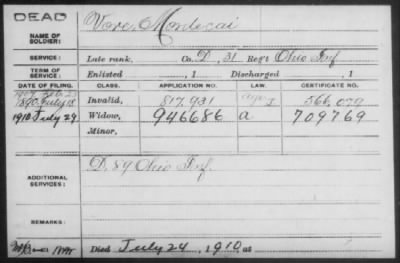 DEAD
NAME OF SOLDIER: Vore, Mordecai
SERVICE: Late rank, Co. D, 31 Reg't Ohio Inf
TERM OF SERVICE: Enlisted , 1 Discharged , 1
DATE OF FILING. CLASS. APPLICATION NO. LAW. CERTIFICATE NO.
1907 Feb 2
1890 July 18 Invalid, 817,931 566,079
1910 July 29 Widow, 946686 a 709769
Minor,
ADDITIONAL SERVICES: D. 89 Ohio Inf.
REMARKS:
Died July 24, 1910, at